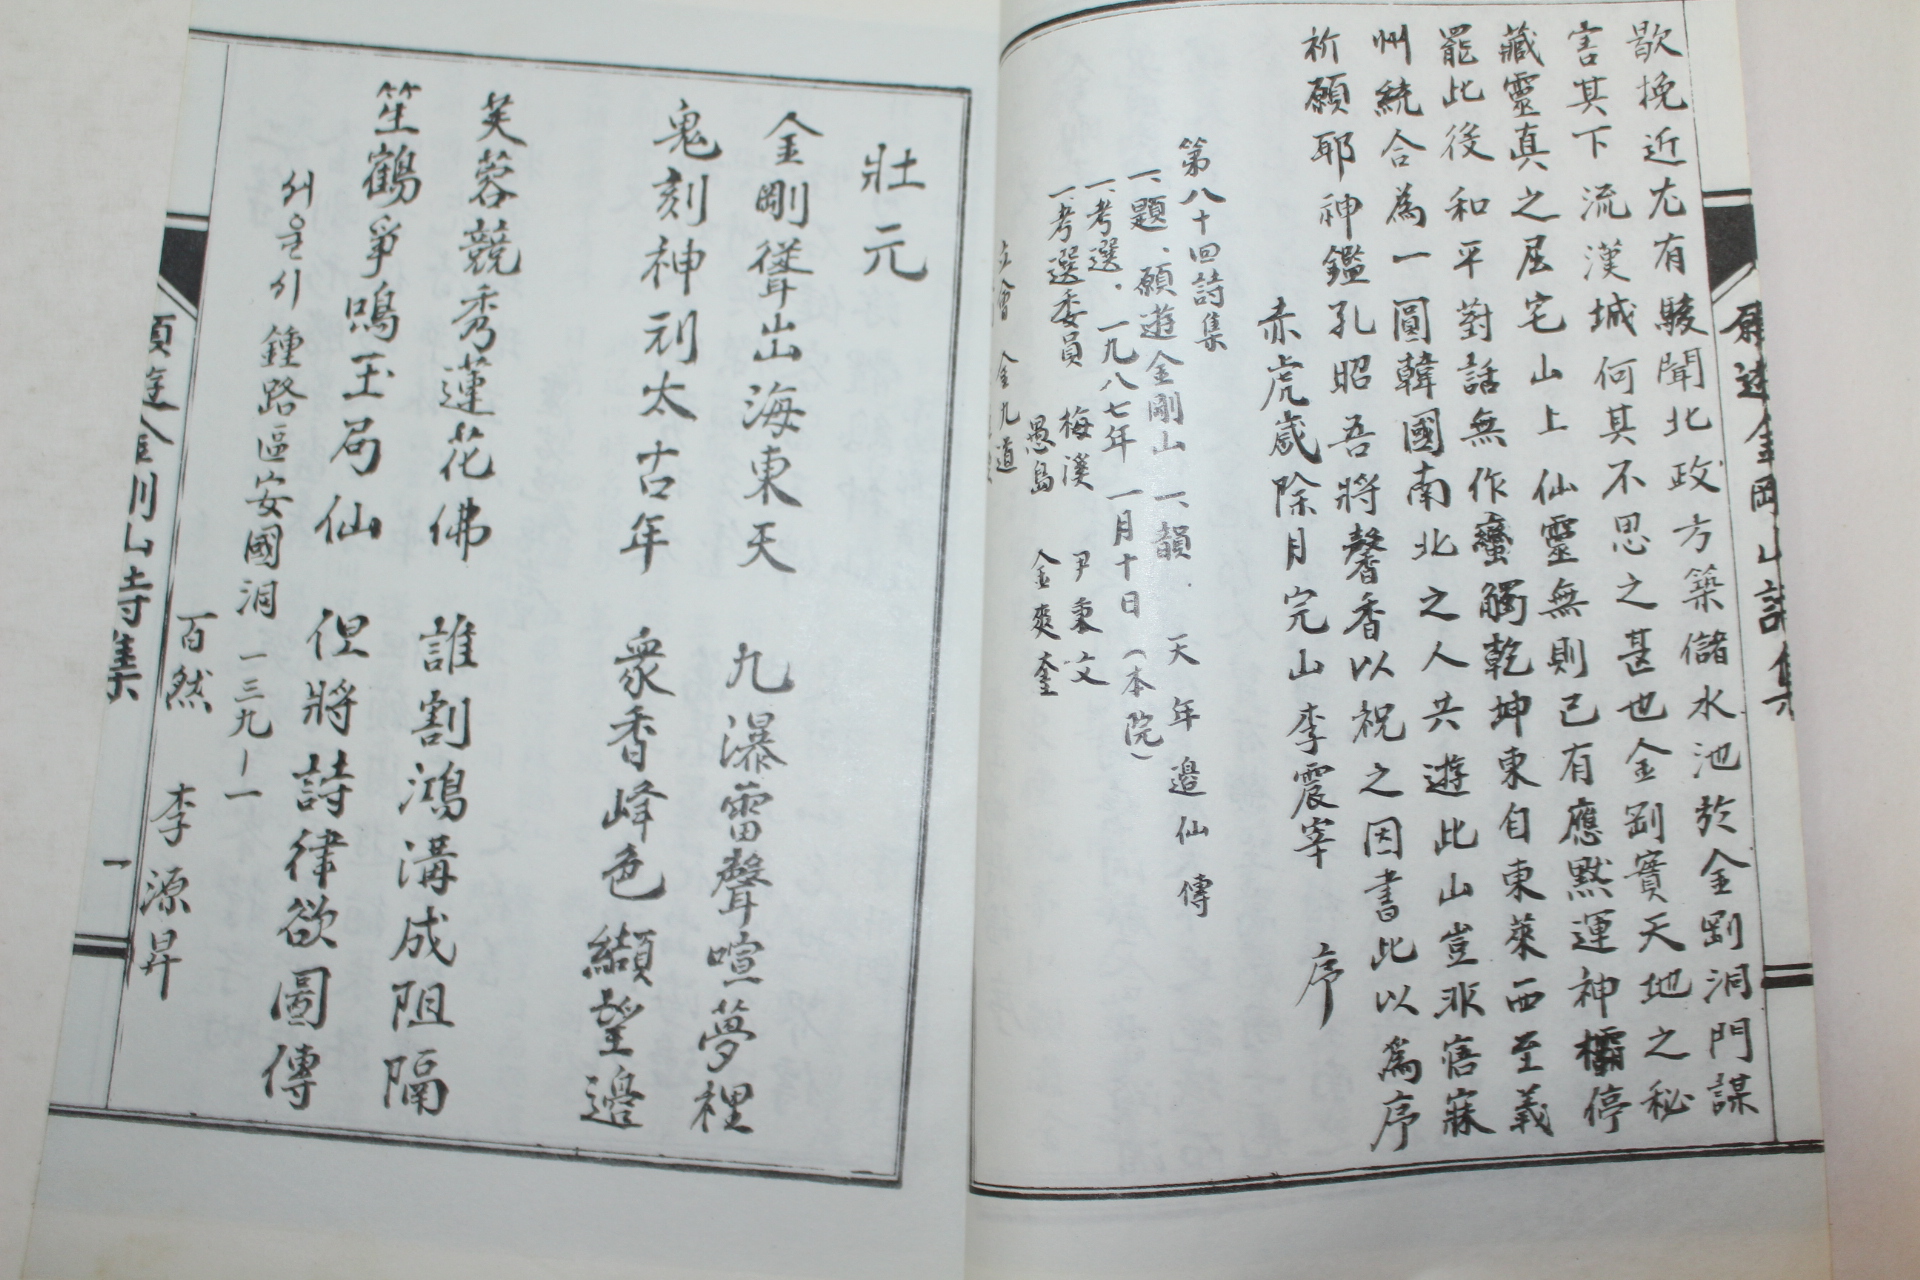 願遊金剛山詩集
歇挽近尤有駿聞北政方築儲水池於金剛洞門謀
害其下流漢城何其不思之甚也金剛實天地之秘
藏靈真之居宅山上仙靈無則已有應黙運神櫺停
罷此後和平對話無作蠻觸乾坤東自東萊西至義
州統合為一圓韓國南北之人共遊此山豈非寤寐
祈願耶神鑑孔昭吾將馨香以祝之因書此以爲序
赤虎歲除月完山李震宰 序
第八十回詩集
一、題、願遊金剛山 一、韻. 天 年 邉 仙 傳
一、考選. 一九八七年 一月十日(本院)
一、考選委員 梅溪 尹秉文
愚島 金奭奎
金九道
壯元
金剛聳山海東天 九瀑雷聲喧夢裡
鬼刻神刓太古年 衆香峰色纈望邉
芙蓉競秀蓮花佛 誰割鴻溝成阻隔
笙鶴爭鳴玉局仙 但將詩律欲圖傳
서울시 鍾路區安國洞 一三九-一
百然 李源昇
願遊金剛山詩集 一